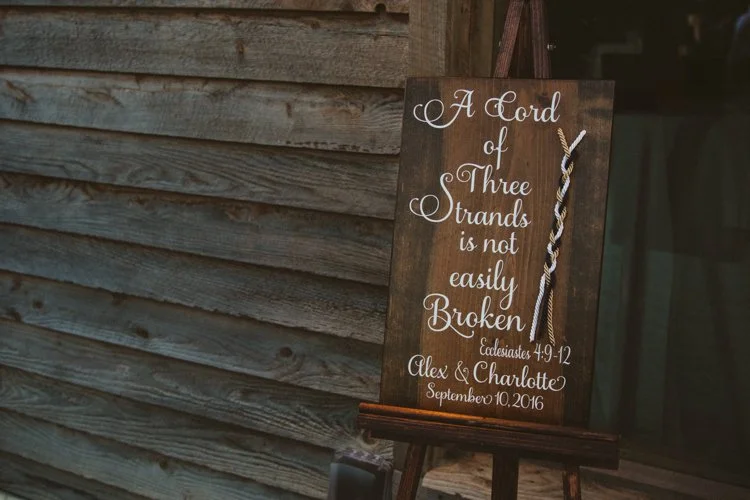 A Cord
of
Three
Strands
is not
easily
Broken
Ecclesiastes 4:9-12
Alex & Charlotte
September 10, 2016